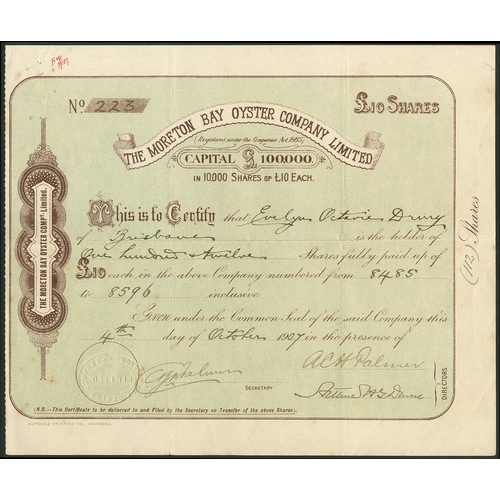 No. 223
£10 SHARES
THE MORETON BAY OYSTER COMPANY LIMITED
(Registered under the Companies Act 1863)
CAPITAL £100,000.
IN 10,000 SHARES OF £10 EACH.
This is to Certify that Evelyn Octavia Drury
of Brisbane is the holder of
One hundred & twelve Shares fully paid up of
£10 each in the above Company numbered from 8485
to 8596 inclusive
Given under the Common Seal of the said Company this
4th day of October 1907 in the presence of
A C H Palmer
SECRETARY
DIRECTORS.
(N.B.—This Certificate to be delivered to and Filed by the Secretary on Transfer of the above Shares.)
OUTRIDGE PRINTING CO., BRISBANE
THE MORETON BAY OYSTER COMPY. Limited.
(112) Shares